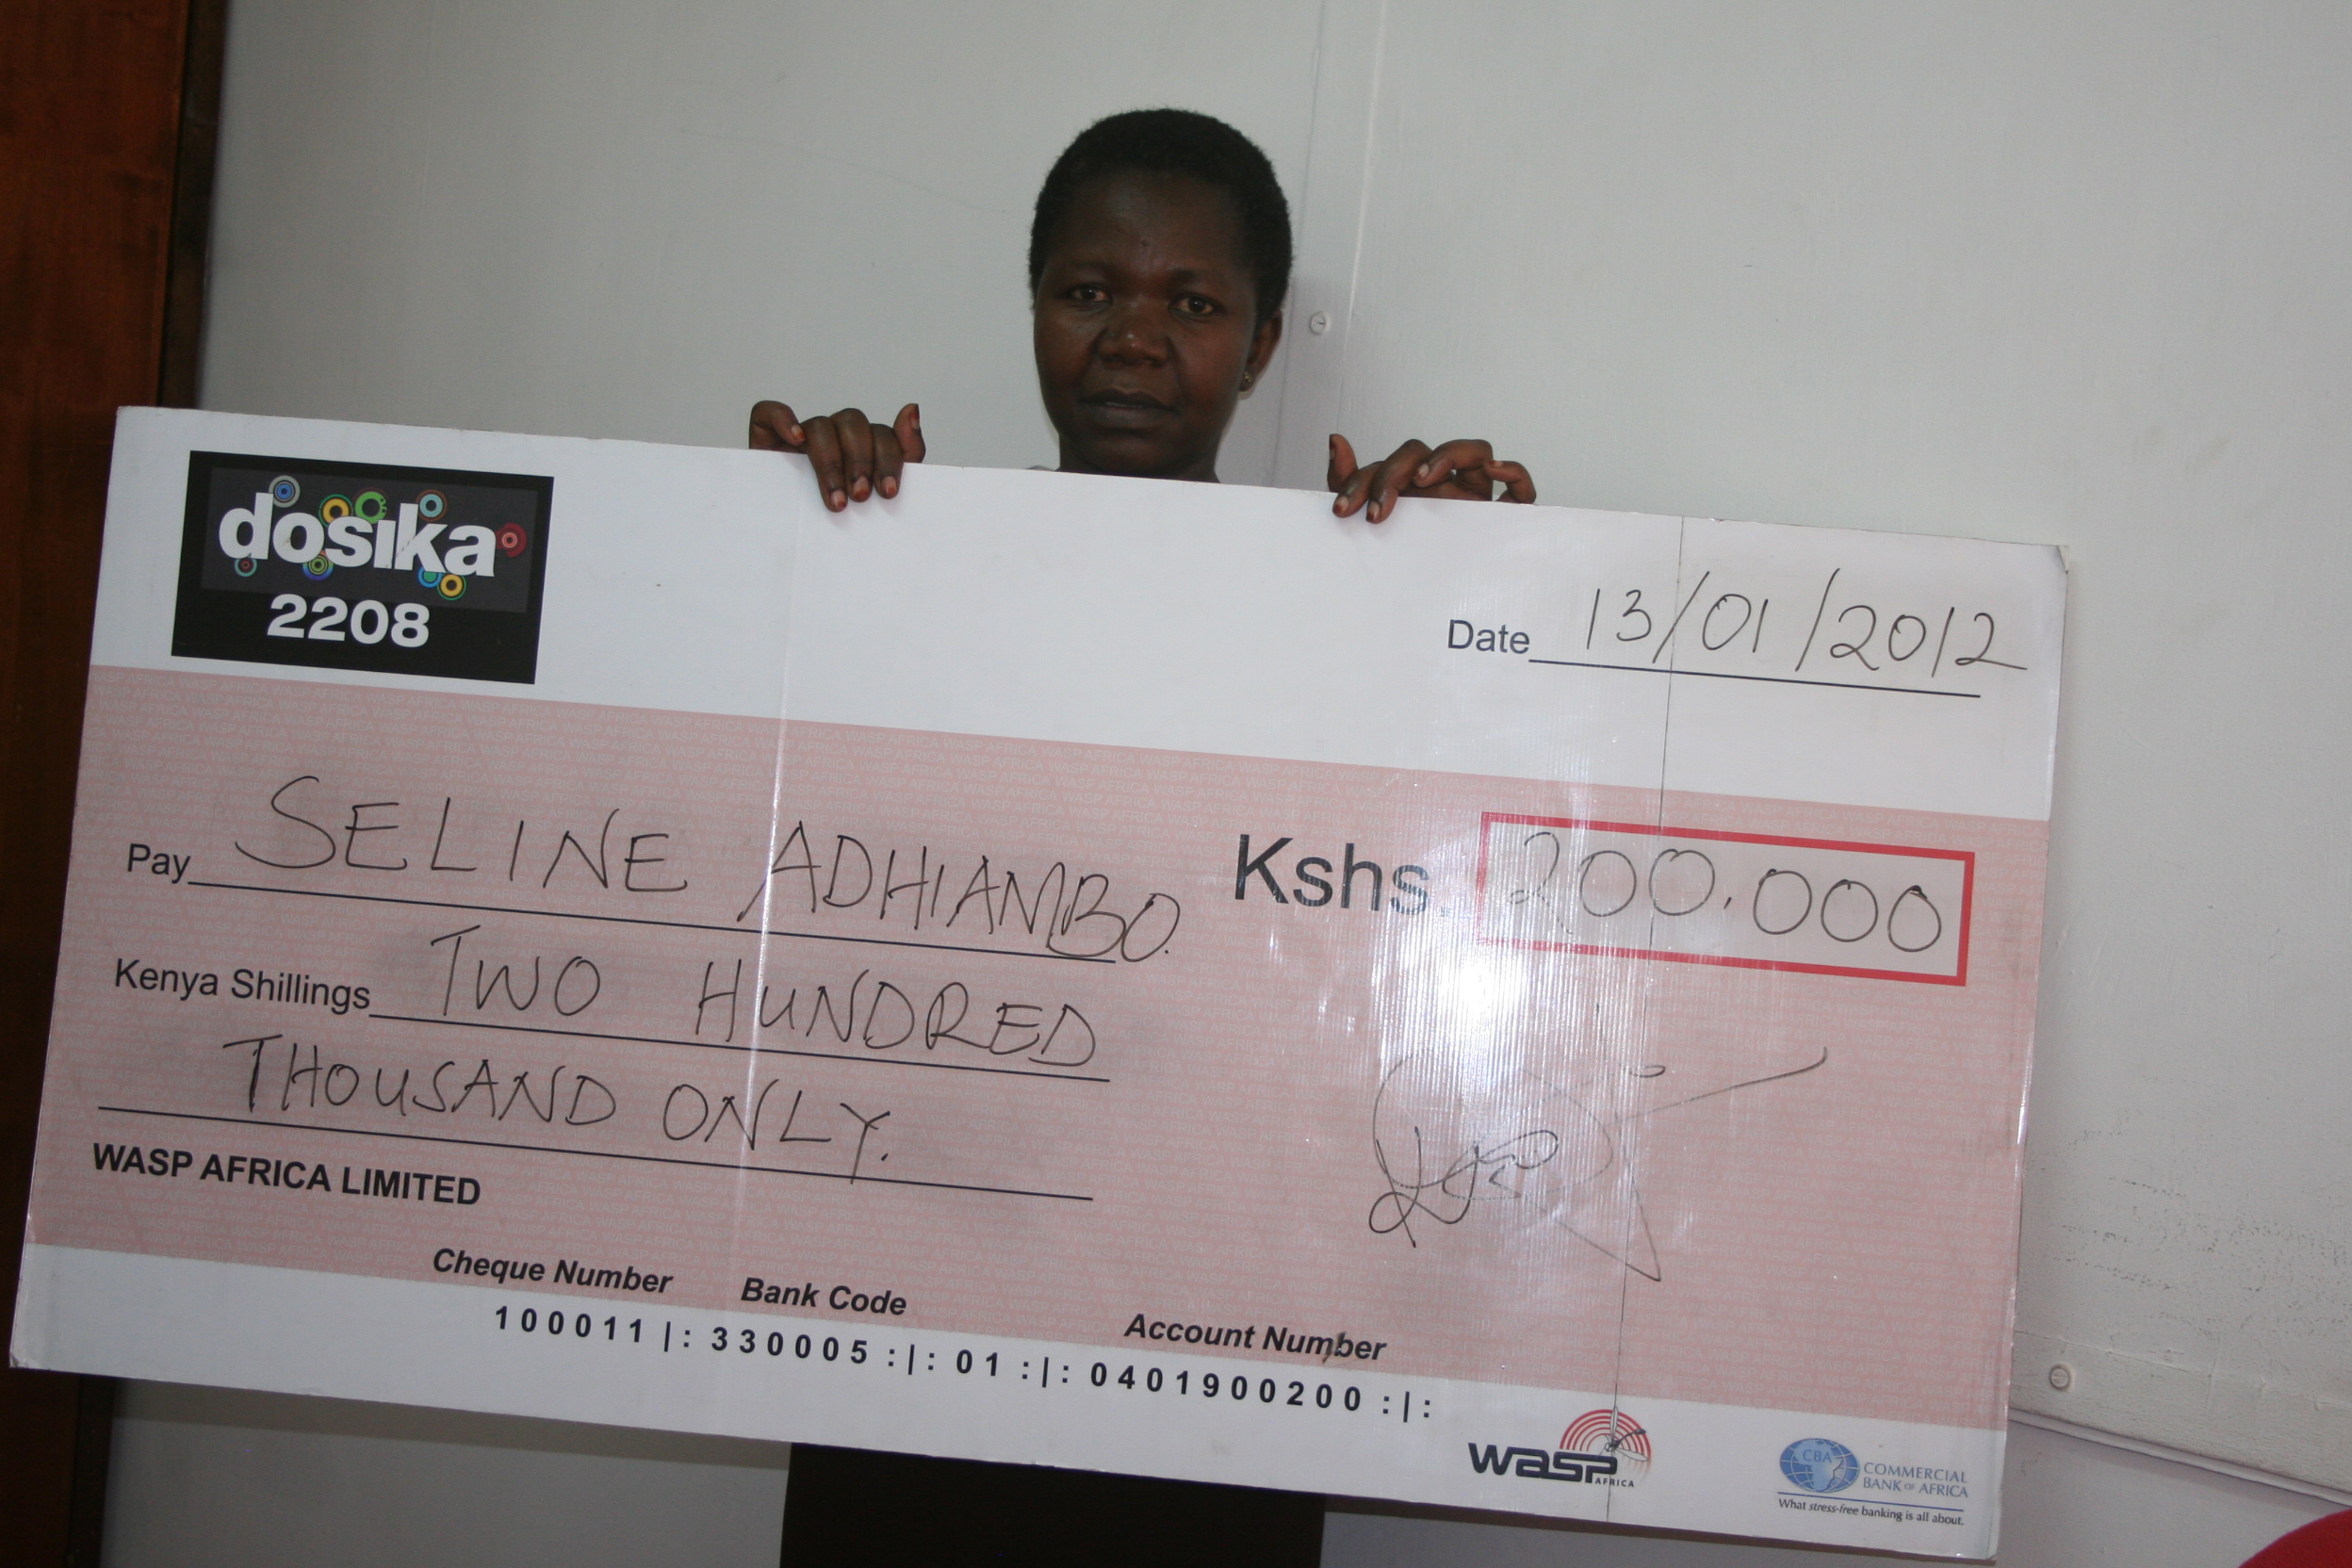 dosika
2208
Date 13/01/2012
Pay SELINE ADHIAMBO.
Kshs. 200.000
Kenya Shillings TWO HUNDRED
THOUSAND ONLY.
WASP AFRICA LIMITED
Cheque Number Bank Code Account Number
100011 |: 330005 :|: 01 :|: 0401900200 :|:
wasp
AFRICA
CBA
COMMERCIAL
BANK OF AFRICA
What stress-free banking is all about.